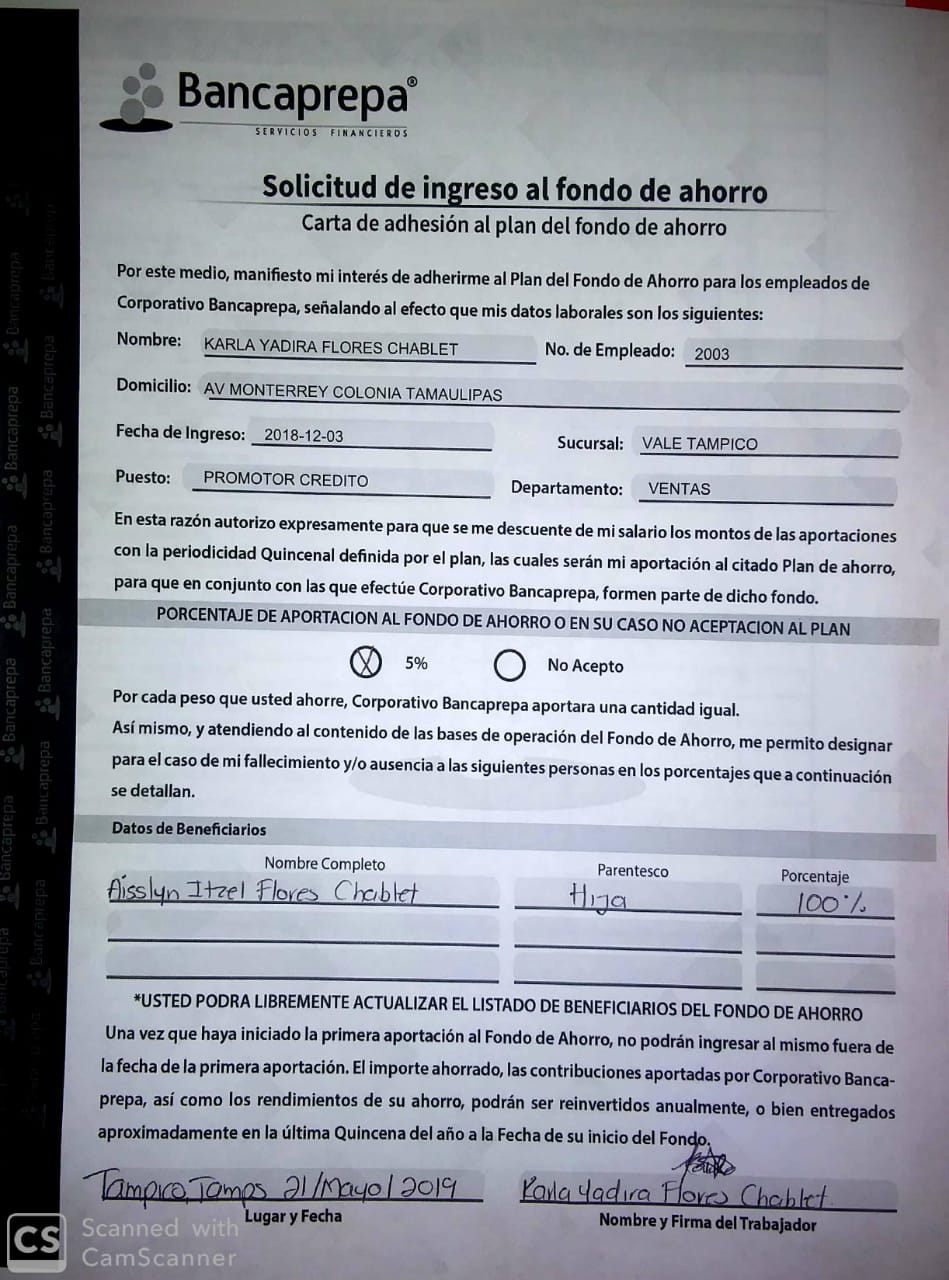 Bancaprepa®
SERVICIOS FINANCIEROS
Solicitud de ingreso al fondo de ahorro
Carta de adhesión al plan del fondo de ahorro
Por este medio, manifiesto mi interés de adherirme al Plan del Fondo de Ahorro para los empleados de
Corporativo Bancaprepa, señalando al efecto que mis datos laborales son los siguientes:
Nombre: KARLA YADIRA FLORES CHABLET No. de Empleado: 2003
Domicilio: AV MONTERREY COLONIA TAMAULIPAS
Fecha de Ingreso: 2018-12-03 Sucursal: VALE TAMPICO
Puesto: PROMOTOR CREDITO Departamento: VENTAS
En esta razón autorizo expresamente para que se me descuente de mi salario los montos de las aportaciones
con la periodicidad Quincenal definida por el plan, las cuales serán mi aportación al citado Plan de ahorro,
para que en conjunto con las que efectúe Corporativo Bancaprepa, formen parte de dicho fondo.
PORCENTAJE DE APORTACION AL FONDO DE AHORRO O EN SU CASO NO ACEPTACION AL PLAN
X 5% No Acepto
Por cada peso que usted ahorre, Corporativo Bancaprepa aportara una cantidad igual.
Así mismo, y atendiendo al contenido de las bases de operación del Fondo de Ahorro, me permito designar
para el caso de mi fallecimiento y/o ausencia a las siguientes personas en los porcentajes que a continuación
se detallan.
Datos de Beneficiarios
Nombre Completo Parentesco Porcentaje
Aisslyn Itzel Flores Chablet Hija 100%
*USTED PODRA LIBREMENTE ACTUALIZAR EL LISTADO DE BENEFICIARIOS DEL FONDO DE AHORRO
Una vez que haya iniciado la primera aportación al Fondo de Ahorro, no podrán ingresar al mismo fuera de
la fecha de la primera aportación. El importe ahorrado, las contribuciones aportadas por Corporativo Banca-
prepa, así como los rendimientos de su ahorro, podrán ser reinvertidos anualmente, o bien entregados
aproximadamente en la última Quincena del año a la Fecha de su inicio del Fondo.
Tampico, Tamps 21/Mayo/2019 Karla Yadira Flores Chablet
Lugar y Fecha Nombre y Firma del Trabajador
CS Scanned with
CamScanner